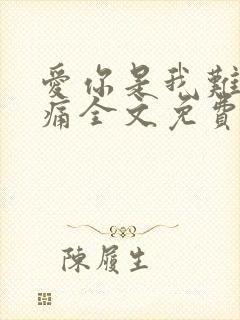 愛你是我難
痛全文免費
陳履生